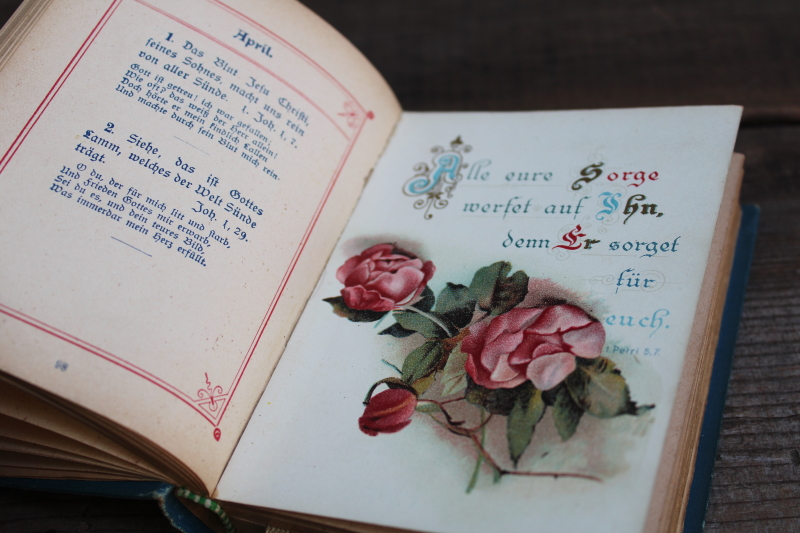 April.
1. Das Blut Jesu Christi,
seines Sohnes, macht uns rein
von aller Sünde. 1. Joh. 1, 7.
Gott ist getreu! ich war gefallen;
Wie oft? das weiß der Herr allein!
Doch hörte er mein kindlich Lallen
Und machte durch sein Blut mich rein.
2. Siehe, das ist Gottes
Lamm, welches der Welt Sünde
trägt. Joh. 1, 29.
O du, der für mich litt und starb,
Und Frieden Gottes mir erwarb,
Sei du es, und dein teures Bild,
Was immerdar mein Herz erfüllt.
98
Alle eure Sorge
werfet auf Ihn,
denn Er sorget
für
euch.
1. Petri 5,7.